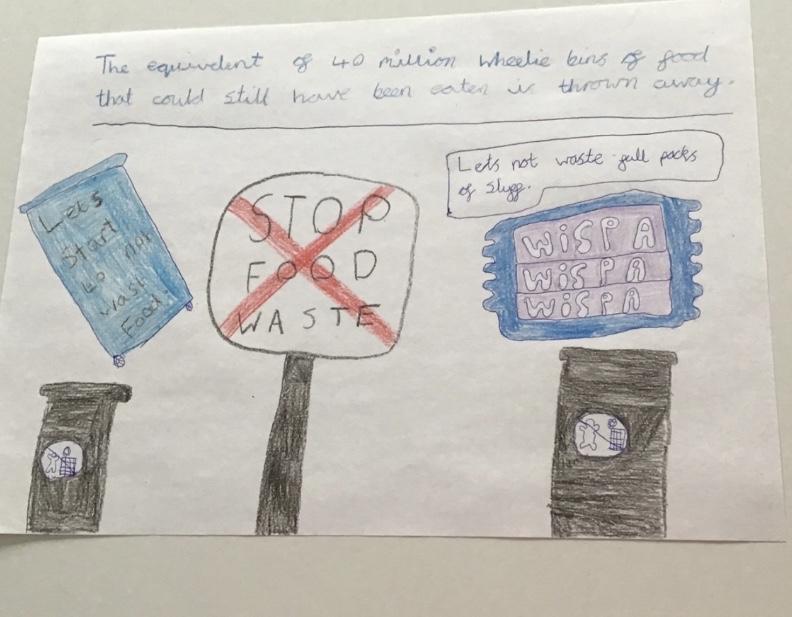 The equivelent of 40 million wheelie bins of food
that could still have been eaten is thrown away.
Lets
Start
to not
wast
Food.
STOP
FOOD
WASTE
Lets not waste full packs
of stuff.
WiSPA
WiSPA
WiSPA